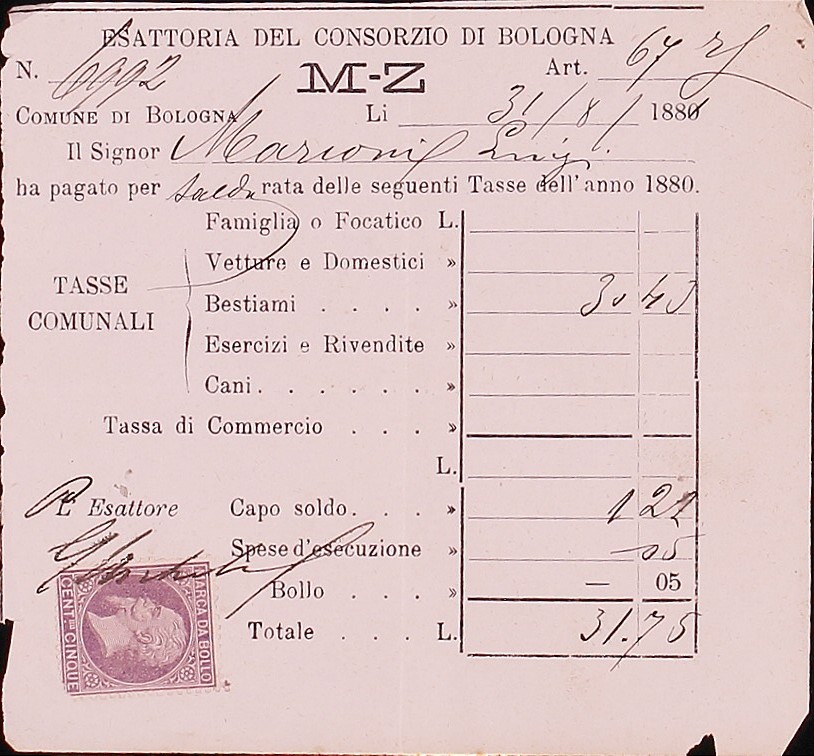 ESATTORIA DEL CONSORZIO DI BOLOGNA
N. 6992 M-Z Art. 67
COMUNE DI BOLOGNA Li 31/8/ 1880
Il Signor Marioni Luigi
ha pagato per saldo rata delle seguenti Tasse dell'anno 1880.
Famiglia o Focatico L.
Vetture e Domestici »
TASSE COMUNALI
Bestiami . . . . » 30 45
Esercizi e Rivendite »
Cani . . . . . . »
Tassa di Commercio . . . »
L.
L'Esattore Capo soldo. . . » 1 22
Spese d'esecuzione »
Bollo . . . » — 05
Totale . . . L. 31.75
MARCA DA BOLLO
CENT.mi CINQUE